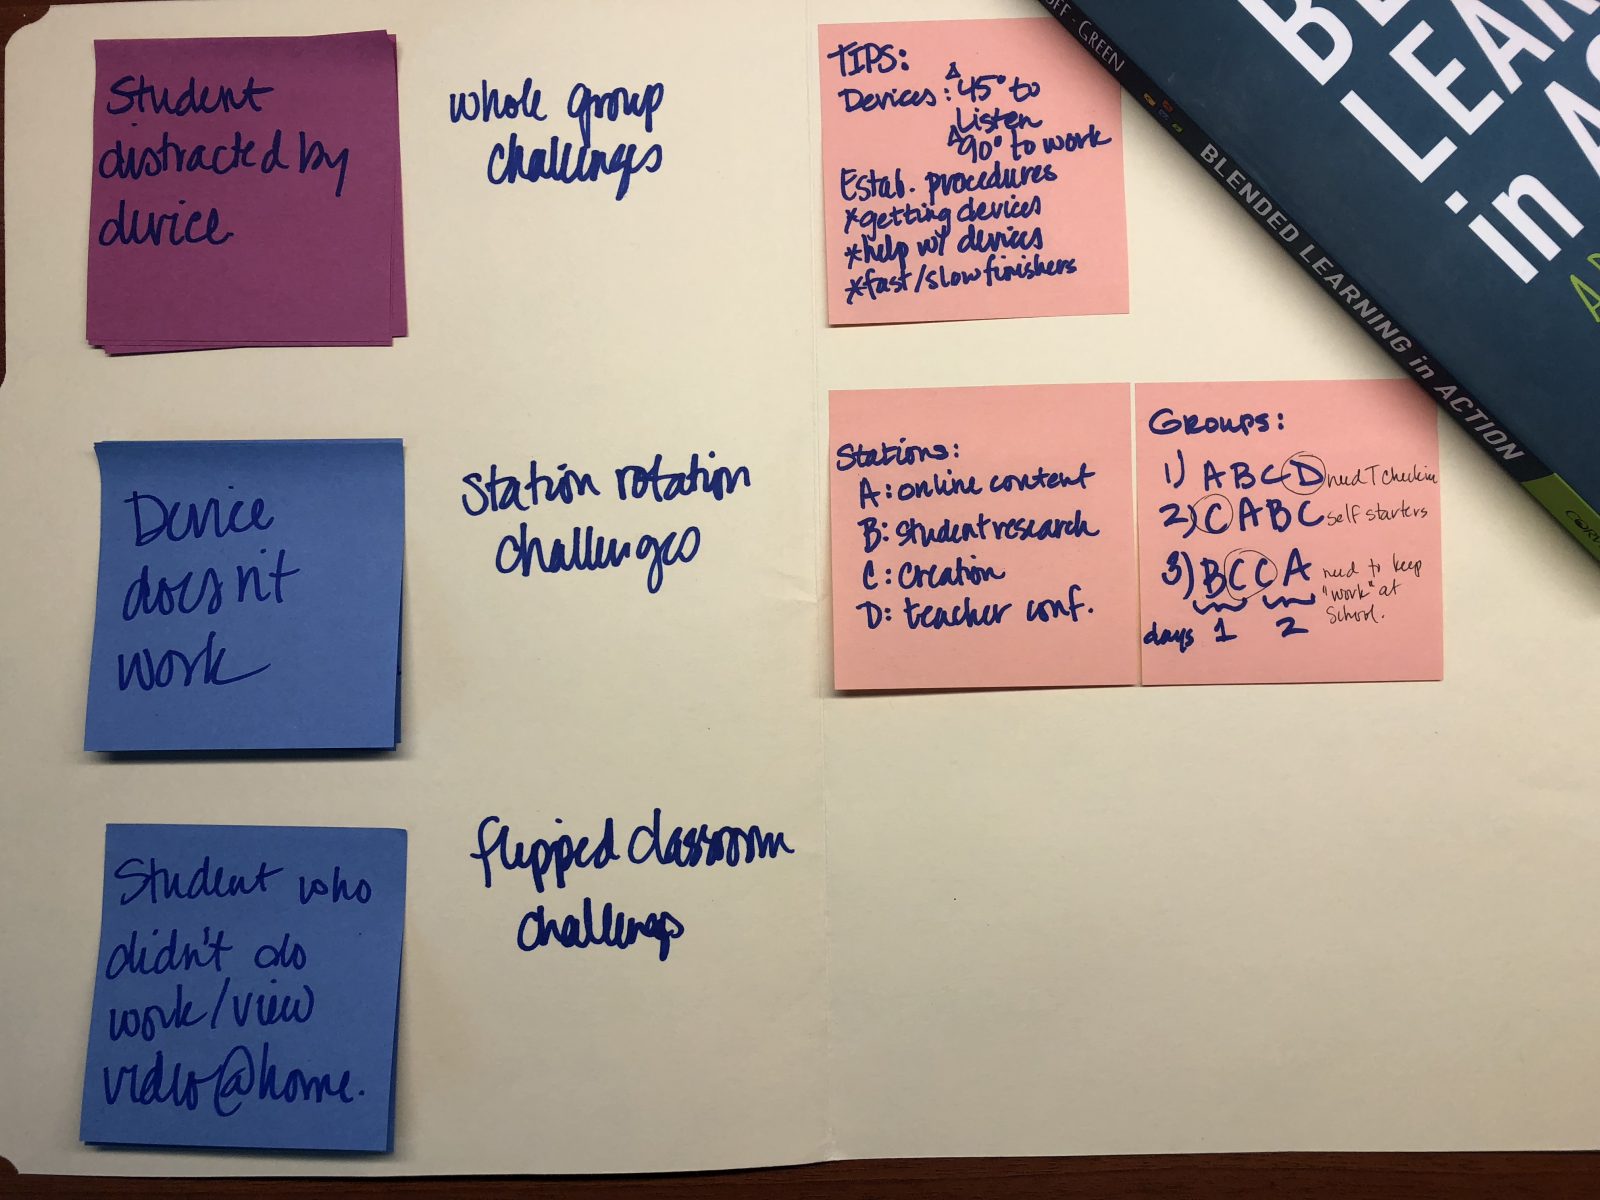 Student
distracted by
device
whole group
challenges
TIPS:
Devices: 45° to
Listen
90° to work
Estab. procedures
*getting devices
*help w/ devices
*fast/slow finishers
Device
doesn't
work
station rotation
challenges
Stations:
A: online content
B: student research
C: Creation
D: teacher conf.
Groups:
1) A B C D need T checkin
2) C A B C self starters
3) B C C A need to keep
"work" at
School.
days 1 2
Student who
didn't do
work/view
video@home.
flipped classroom
challenges
OFF - GREEN
BLENDED LEARNING in ACTION
in